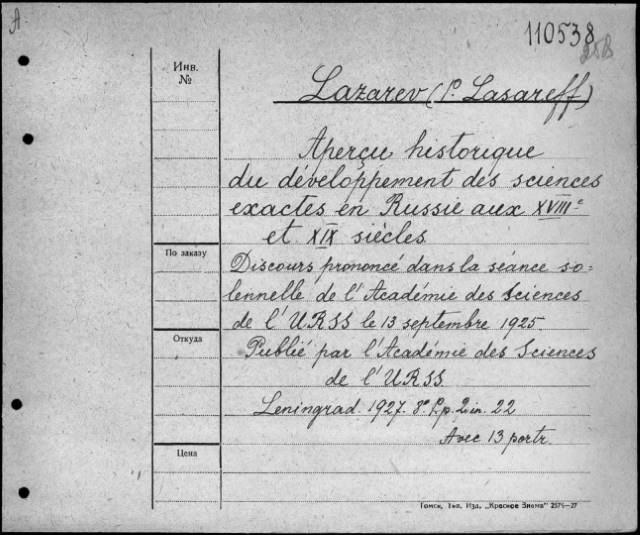 A
110538
Инв.
№
Lazarev (P. Lasareff)
Aperçu historique
du développement des sciences
exactes en Russie aux XVIIIe
et XIX siècles
По заказу
Discours prononcé dans la séance so=
lennelle de l'Académie des Sciences
de l'URSS le 13 septembre 1925.
Откуда
Publié par l'Académie des Sciences
de l'URSS
Leningrad. 1927. 8° 22
Avec 13 portr.
Цена
Томск, Тип. Изд. „Красное Знамя" 2575—27